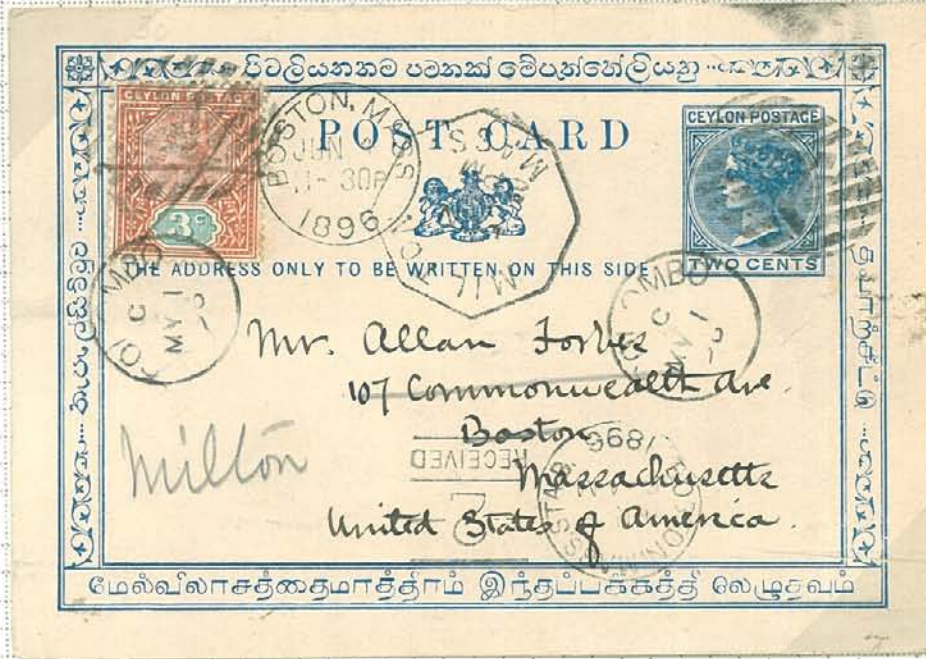 පිටලියනතම පමනක් මේපත්තේලියනු
CEYLON POSTAGE
3c
BOSTON, MASS
JUN
11-30P
1896
POST CARD
CEYLON POSTAGE
TWO CENTS
MILTON MASS
THE ADDRESS ONLY TO BE WRITTEN ON THIS SIDE
COLOMBO
C
MY 1
COLOMBO
C
MY 1
Mr. Allan Forbes
107 Commonwealth Ave.
Boston
Massachusetts
United States of America.
Milton
RECEIVED
2
1896
BOSTON MASS
மேல்விலாசத்தைமாத்திரம் இந்தப்பக்கத்தி லெழுதவும்